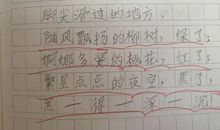 脚尖滑过的地方，
随风飘扬的柳树，绿了；
婀娜多姿的桃花，红了；
繁星点点的夜空，黑了；
黑一得一深一沉